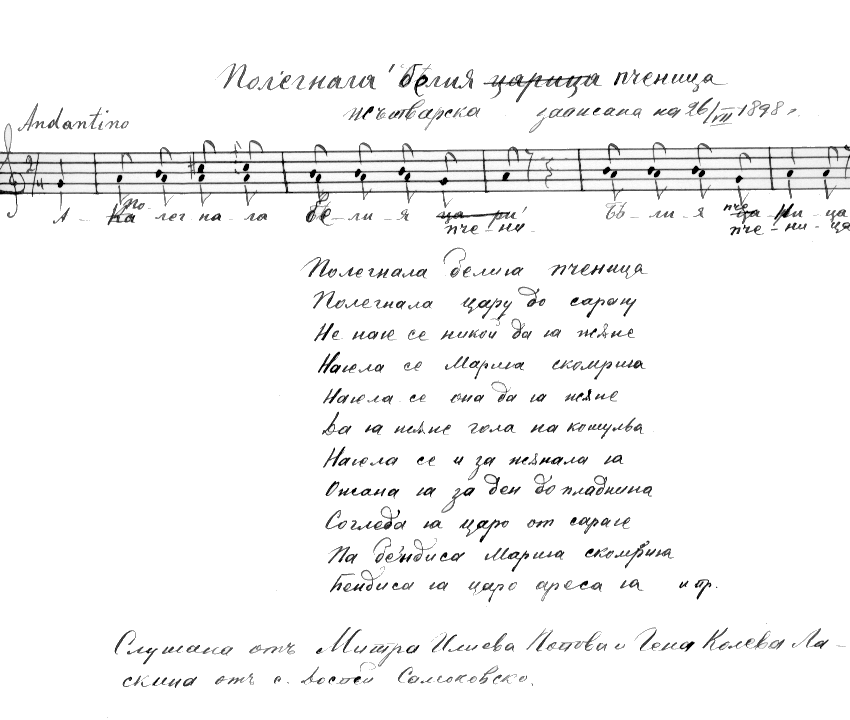 Полегнала белия царица пченица
Жътварска записана на 26/VII 1898 г.
Andantino
2/4
А - Ка по лег на - ла бе - ли - я ца - ри бѣ - ли - я пче ца - ри - ца
пче - ни - пче - ни - ца
Полегнала белиıа пченица
Полегнала цару до сараıу
Не наıе се никой да ıа жѣне
Наıела се Мариıа скомриıа
Наıела се она да ıа жѣне
Да ıа жѣне гола на кошулва
Наıела се и за жѣнала ıа
Ожана ıа за ден до пладнина
Согледа ıа царо от сараıе
Па бендиса Мариıа скомриıа
Бендиса ıа царо ареса ıа и пр.
Слушана отъ Митра Илиева Попова и Гена Колева Ла-
скина отъ с. Доспей Самоковско.